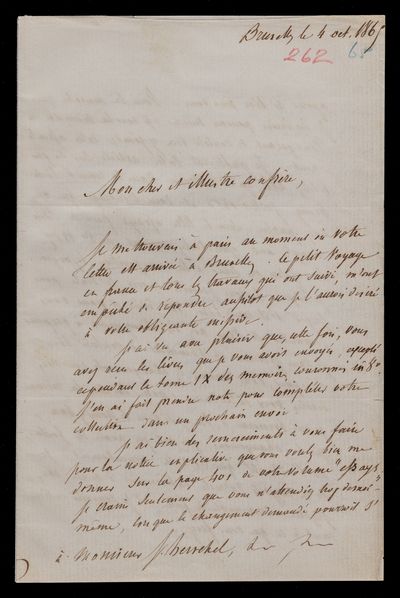 Bruxelles le 4 oct. 1865
262 65
Mon cher et illustre confrère,
Je me trouvais à paris au moment où votre
lettre est arrivée à Bruxelles. le petit voyage
en france et tous les travaux qui ont suivi, m'ont
empêché de répondre aussitôt que je l'aurois désiré
à votre obligeante missive.
J'ai vu avec plaisir que, cette fois, vous
avez reçu les livres que je vous avois envoyés, excepté
cependant le tome IX des memoires couronnés in 8°.
J'en ai fait prendre note pour compléter votre
collection dans un prochain envoi
J'ai bien des remerciements à vous faire
pour la notice explicative que vous voulez bien me
donner sur la page 401 de votre volume "essays"
Je crains seulement que vous n'attendiez trop de moi-
même, lorsque le changement demandé pourroit s'
à Monsieur J. herschel,